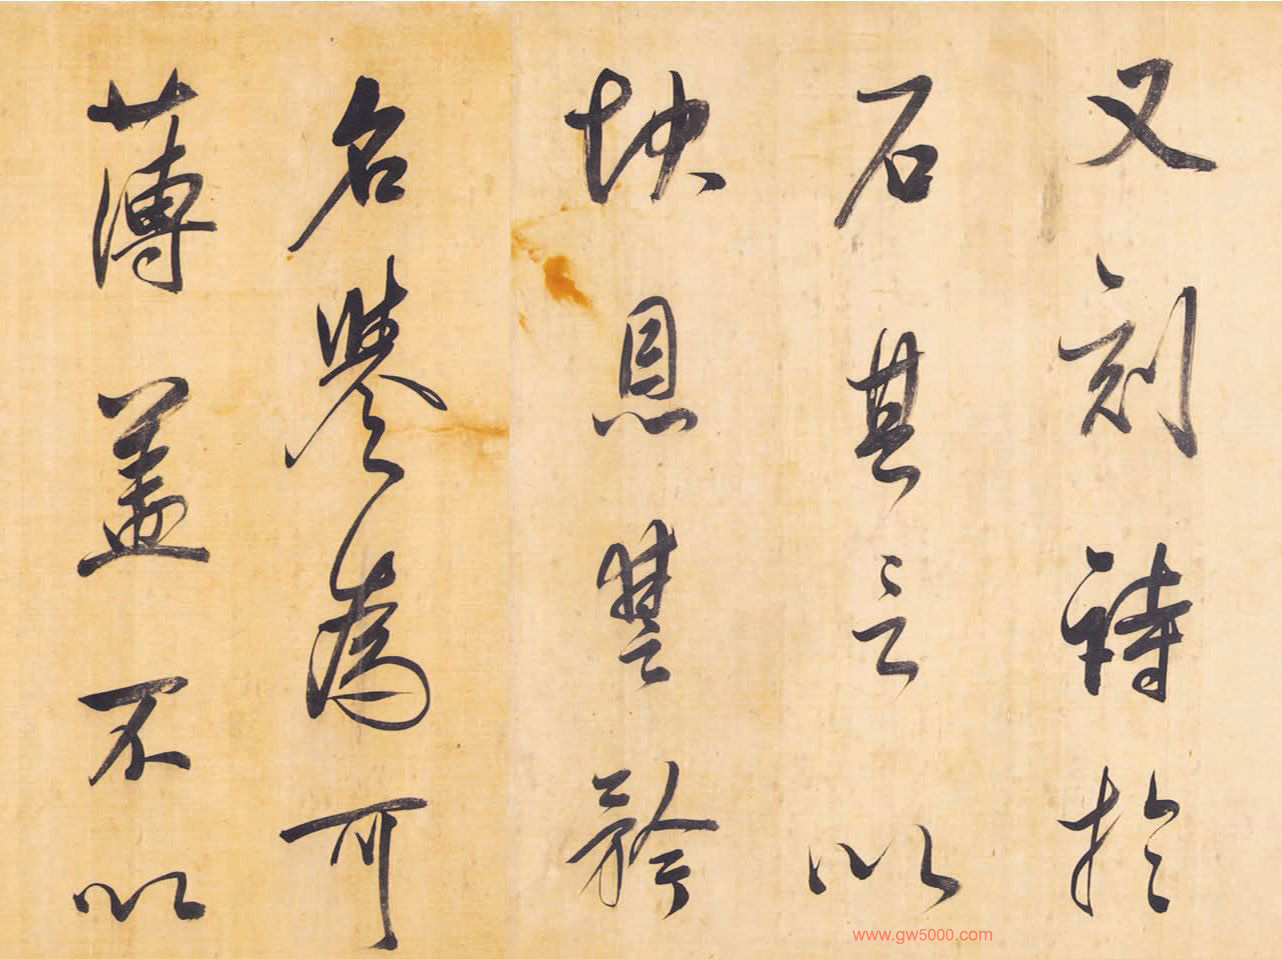 又刻詩於
石其言以
快恩讐矜
名譽為可
薄蓋不以
www.gw5000.com